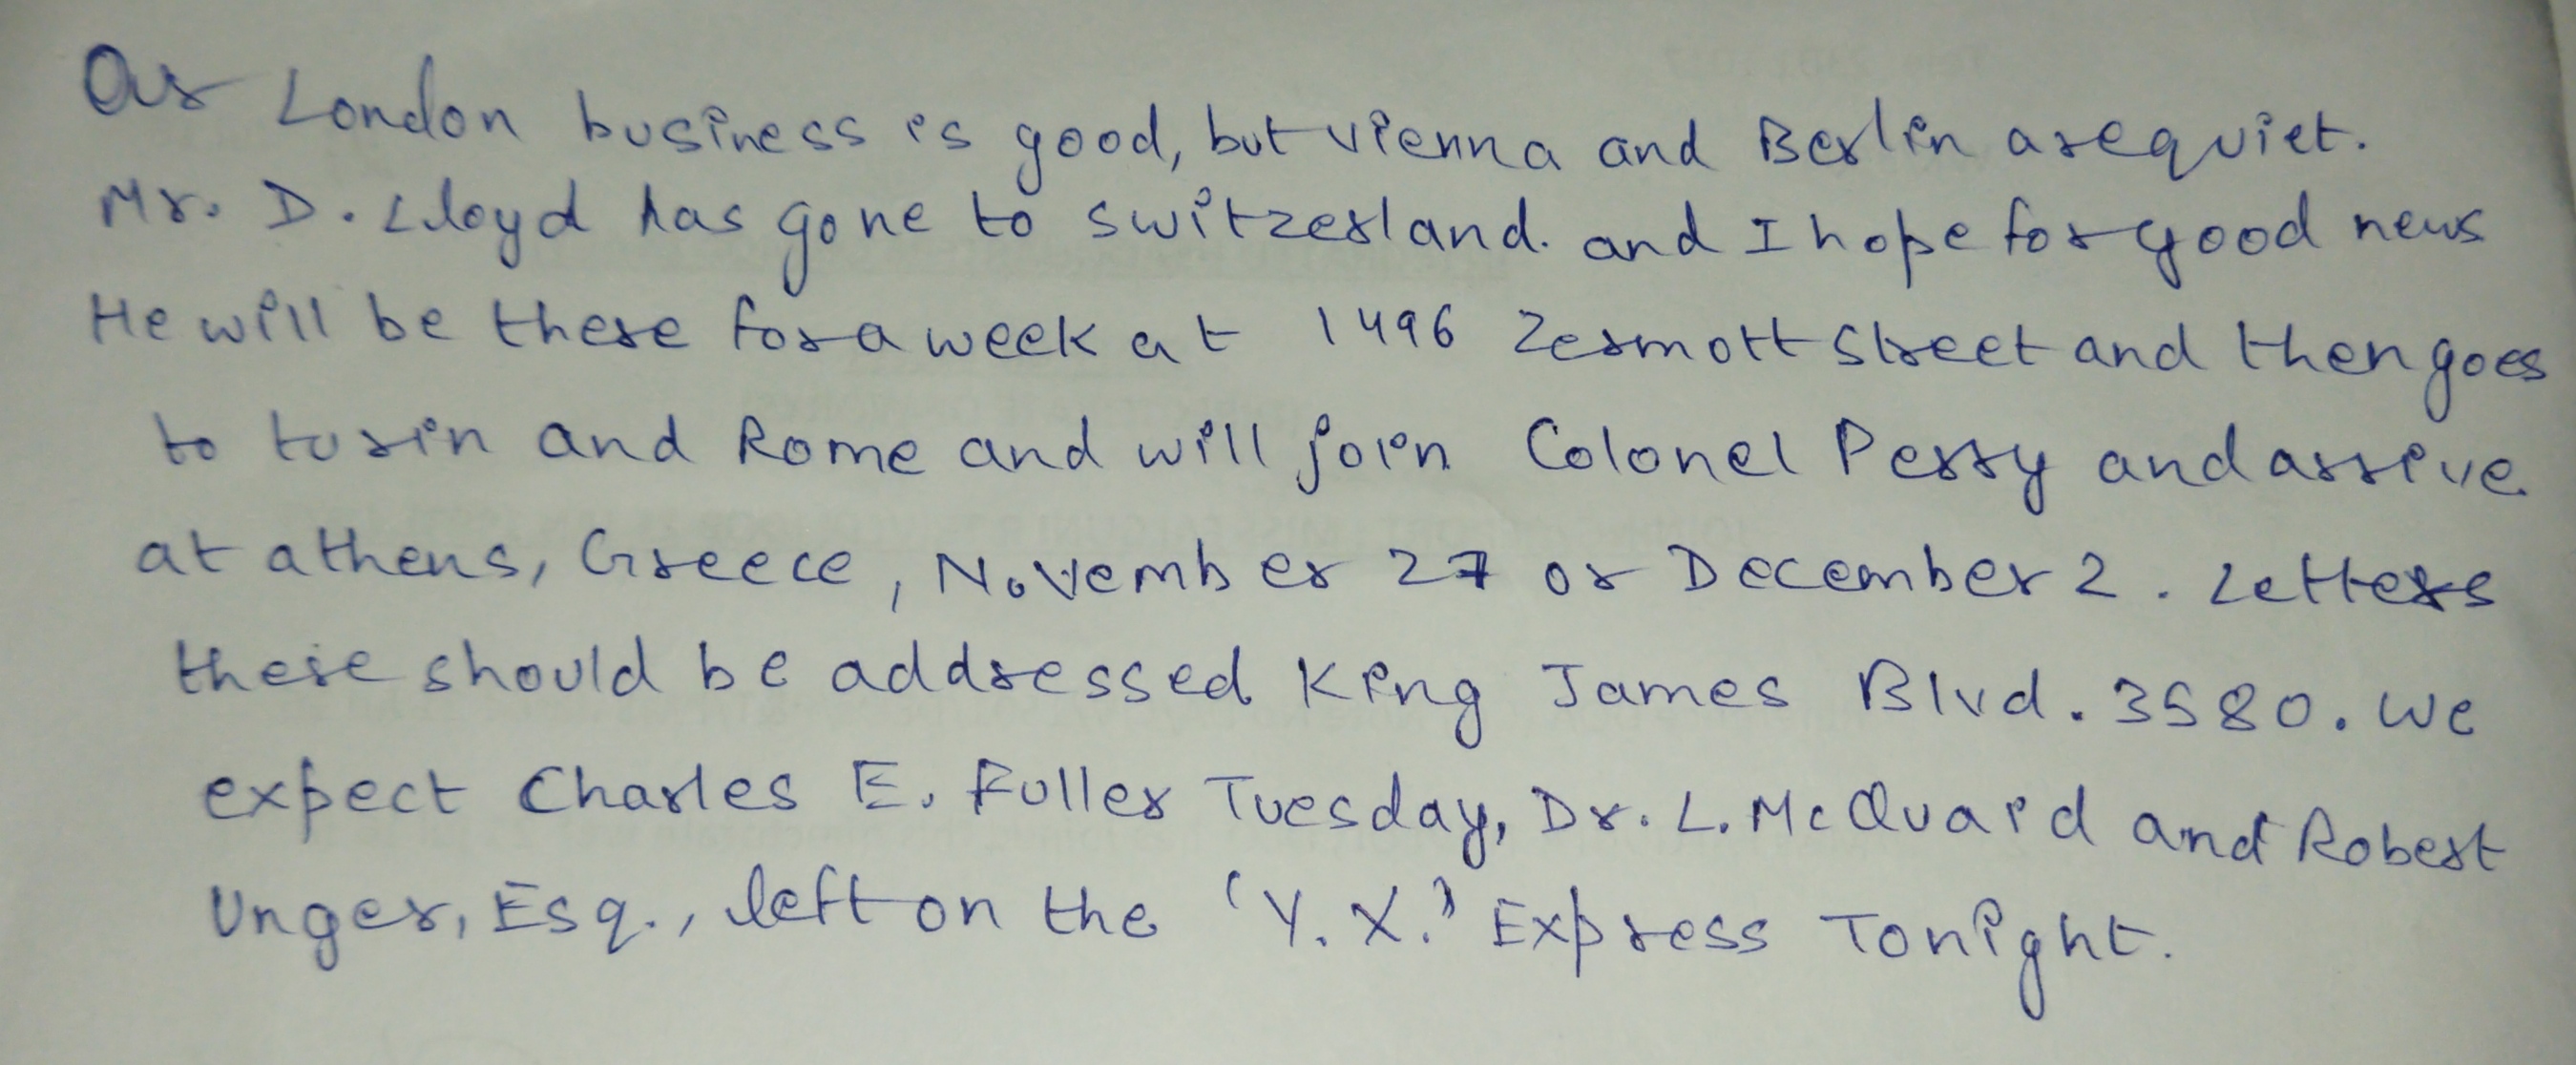 Our London business is good, but vienna and Berlin are quiet.
Mr. D. Lloyd has gone to switzerland. and I hope for good news
He will be there for a week at 1496 Zermott street and then goes
to turin and Rome and will join Colonel Perry and arrive
at athens, Greece, November 27 or December 2. Letters
there should be addressed King James Blvd. 3580. we
expect Charles E. Fuller Tuesday, Dr. L. McQuaid and Robert
Unger, Esq., left on the 'Y. X.' Express Tonight.